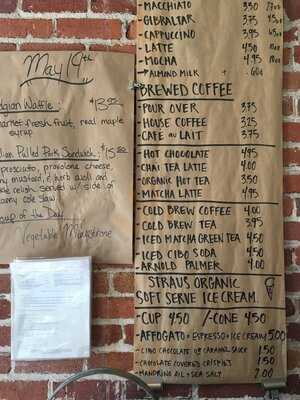 May 19th
gian Waffle: $13.00
arket fresh fruit, real maple
syrup
lian Pulled Pork Sandwich $15.00
prosciutto, provolone cheese,
mustard, & herb aioli and
relish served w/ side of
amy cole slaw
oup of the Day
Vegetable Minestrone
MACCHIATO 3.50
GIBRALTAR 3.75
CAPPUCCINO 3.95
- LATTE 4.50
- MOCHA 4.95
- ALMOND MILK + .60¢
BREWED COFFEE
- POUR OVER 3.75
- HOUSE COFFEE 3.25
- CAFE au LAIT 3.75
- HOT CHOCOLATE 4.95
- CHAI TEA LATTE 4.00
- ORGANIC HOT TEA 3.50
- MATCHA LATTE 4.95
- COLD BREW COFFEE 4.00
- COLD BREW TEA 3.95
- ICED MATCHA GREEN TEA 4.50
- ICED CIDO SODA 4.50
- ARNOLD PALMER 4.00
STRAUS ORGANIC
SOFT SERVE ICE CREAM.
- CUP 4.50 /- CONE 4.50
- AFFOGATO = ESPRESSO + ICE CREAM 5.00
- CIDO CHOCOLATE OR CARAMEL SAUCE 1.50
- CHOCOLATE COVERED CRISPIES 1.50
- MANDRINO OIL + SEA SALT 2.00